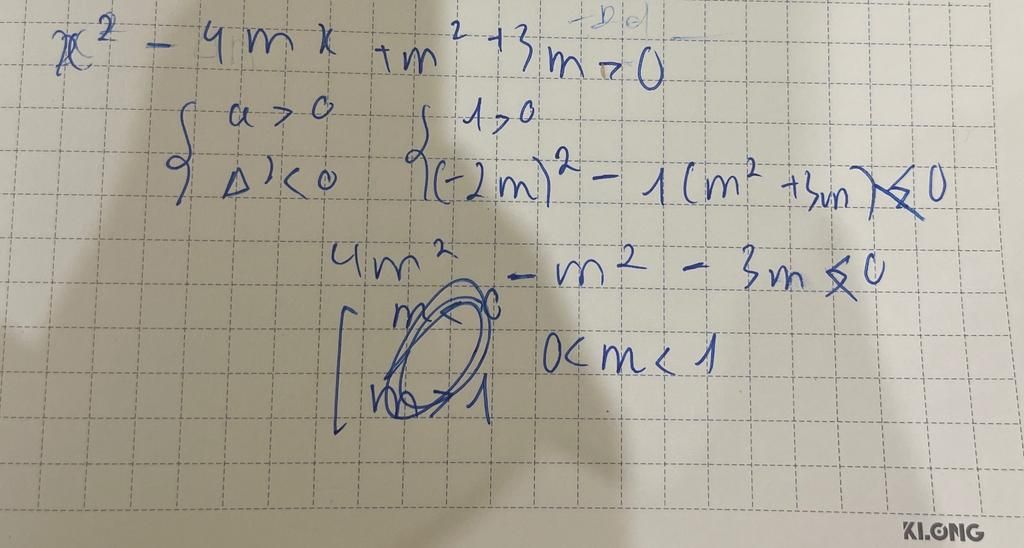 x² - 4mx + m² + 3m > 0
{ a > 0 { 1 > 0
Δ' < 0 (-2m)² - 1(m² + 3m) < 0
4m² - m² - 3m < 0
[ m < 0
0 < m < 1
m > 1
KLONG